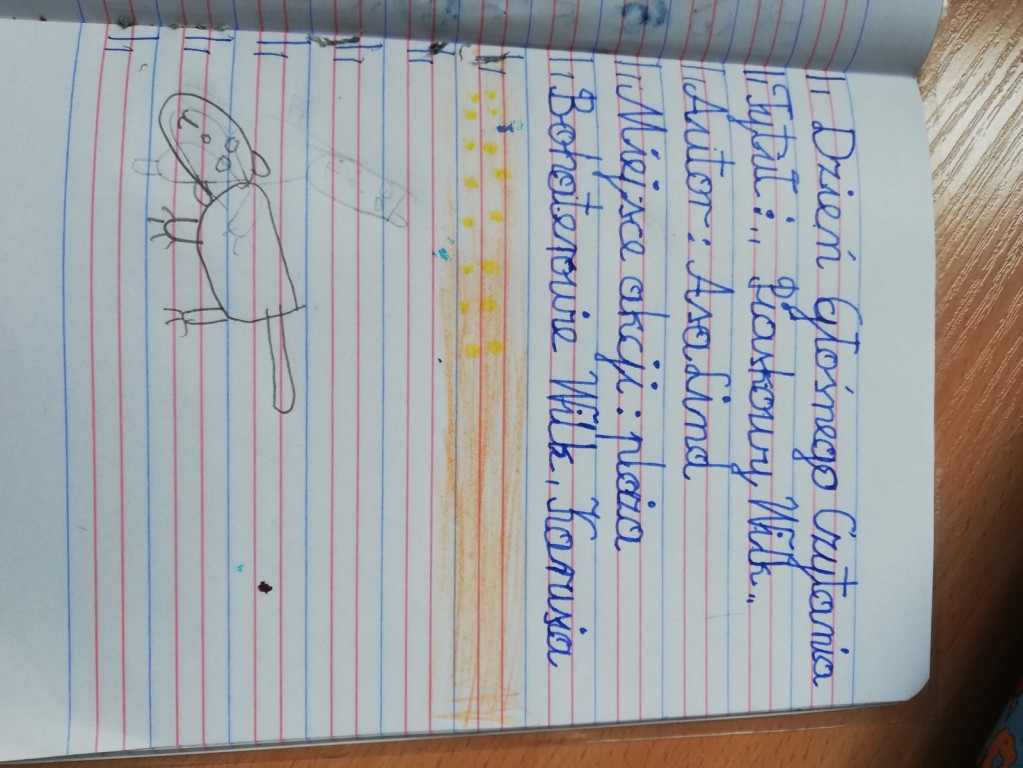 Dzień Głośnego Czytania
Tytuł: „Piaskowy Wilk„
Autor: Asa Lind
Miejsce akcji: plaża
Bohaterowie Wilk, Karusia